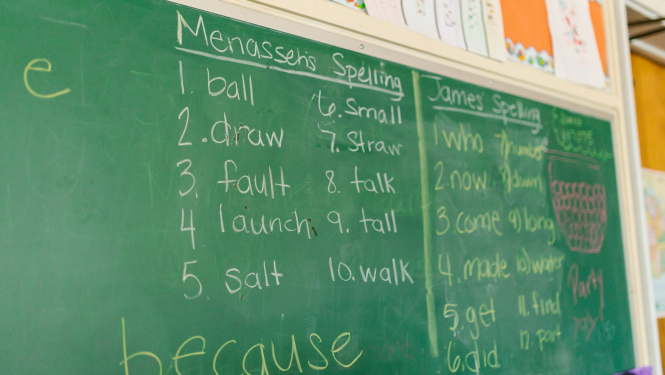 e
Menasseh's Spelling
1. ball
2. draw
3. fault
4 launch
5. salt
6. small
7. straw
8. talk
9. tall
10. walk
because
James' Spelling
1 who
2 now
3. come
4. made
5. get
6. did
7) number
8) down
9) long
10) water
11. find
12. part
Party